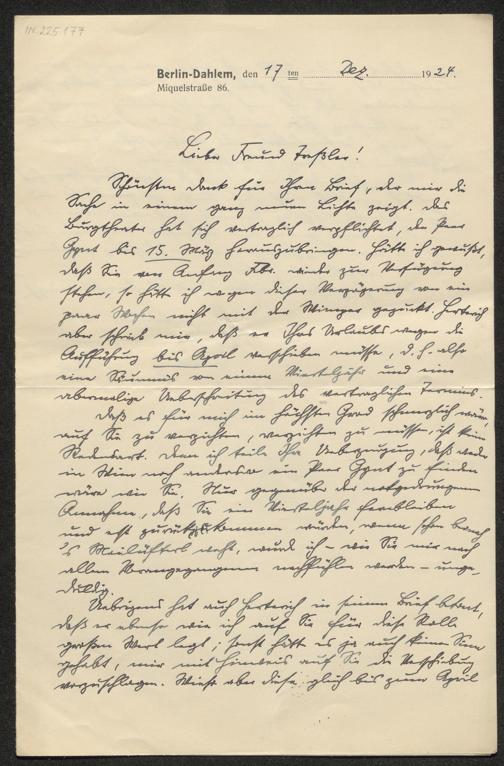 IN 225.177
Berlin-Dahlem, den 17 ten Dez. 1924.
Miquelstraße 86.
Lieber Freund Treßler!
Schönsten Dank für Ihren Brief, der mir die
Sache in einem ganz neuen Lichte zeigt. Das
Burgtheater hat sich vertraglich verpflichtet, den Peer
Gynt bis 15. März herauszubringen. Hätte ich gewußt,
daß Sie von Anfang Febr. wieder zur Verfügung
stehen, so hätte ich wegen dieser Verzögerung von ein
paar Wochen nicht mit der Wimper gezuckt. Herterich
aber schrieb mir, daß er Ihres Urlaubs wegen die
Aufführung bis April verschieben müsse, d. h. also
eine Säumnis von einem Vierteljahr und eine
abermalige Ueberschreitung des vertraglichen Termins.
Daß es für mich im höchsten Grad schmerzlich wäre,
auf Sie zu verzichten, verzichten zu müssen, ist kein
Redensart. Denn ich teile Ihre Ueberzeugung, daß weder
in Wien noch anderswo ein Peer Gynt zu finden
wäre wie Sie. Nur gegenüber der notgedrungenen
Annahme, daß Sie ein Vierteljahr fernbleiben
und erst zurückkommen würden, wenn schon
's Mailüfterl weht, wurde ich – wie Sie mir nach
allem Vorangegangenen nachfühlen werden – unge-
duldig.
Uebrigens hat auch Herterich in seinem Brief betont,
daß er ebenso wie ich auf Sie für diese Rolle
großen Wert legt; sonst hätte es ja auch keinen Sinn
gehabt, mir mit Hinweis auf Sie die Verschiebung
vorzuschlagen. Wieso aber diese gleich bis zum April